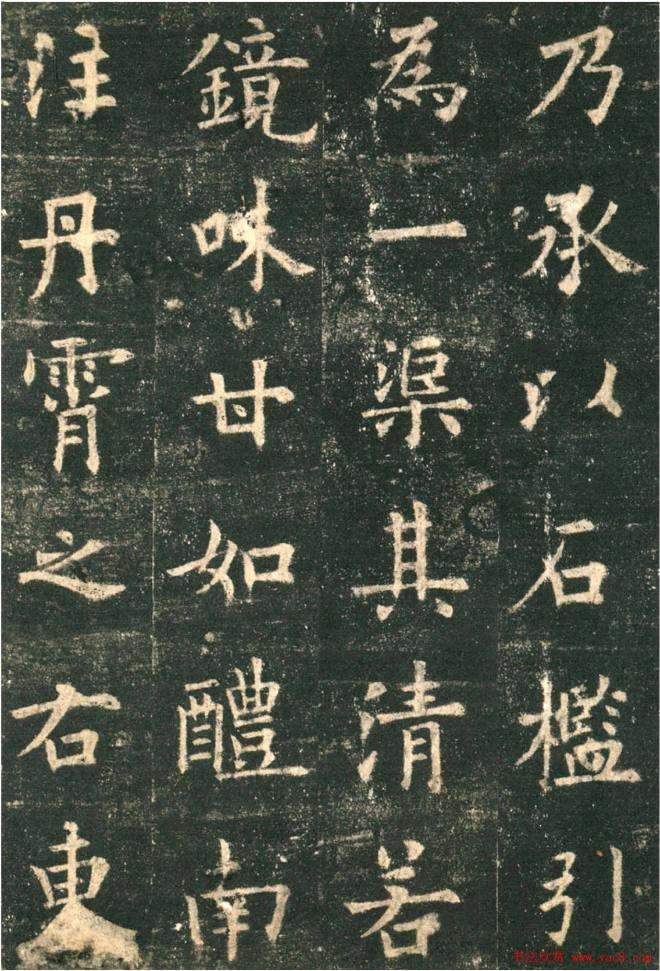 乃承以石檻引
為一渠其清若
鏡味甘如醴南
注丹霄之右東
书法欣赏 www.yac8.com